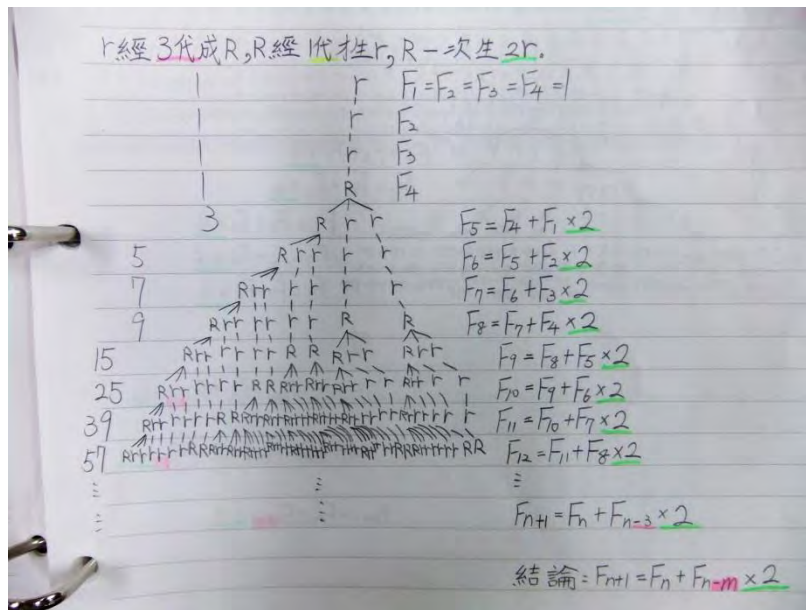 r經3代成R,R經1代才生r,R一次生2r.
1 r F₁=F₂=F₃=F₄=1
1 r F₂
1 r F₃
1 R F₄
3 R r r F₅=F₄+F₁×2
5 R r r r r F₆=F₅+F₂×2
7 R r r r r r r F₇=F₆+F₃×2
9 R r r r r r r R R F₈=F₇+F₄×2
15 R r r r r r r R R R r r R r r F₉=F₈+F₅×2
25 F₁₀=F₉+F₆×2
39 F₁₁=F₁₀+F₇×2
57 F₁₂=F₁₁+F₈×2
⋮ ⋮ ⋮
⋮ ⋮ Fₙ₊₁=Fₙ+Fₙ₋₃×2
結論:Fₙ₊₁=Fₙ+Fₙ₋ₘ×2